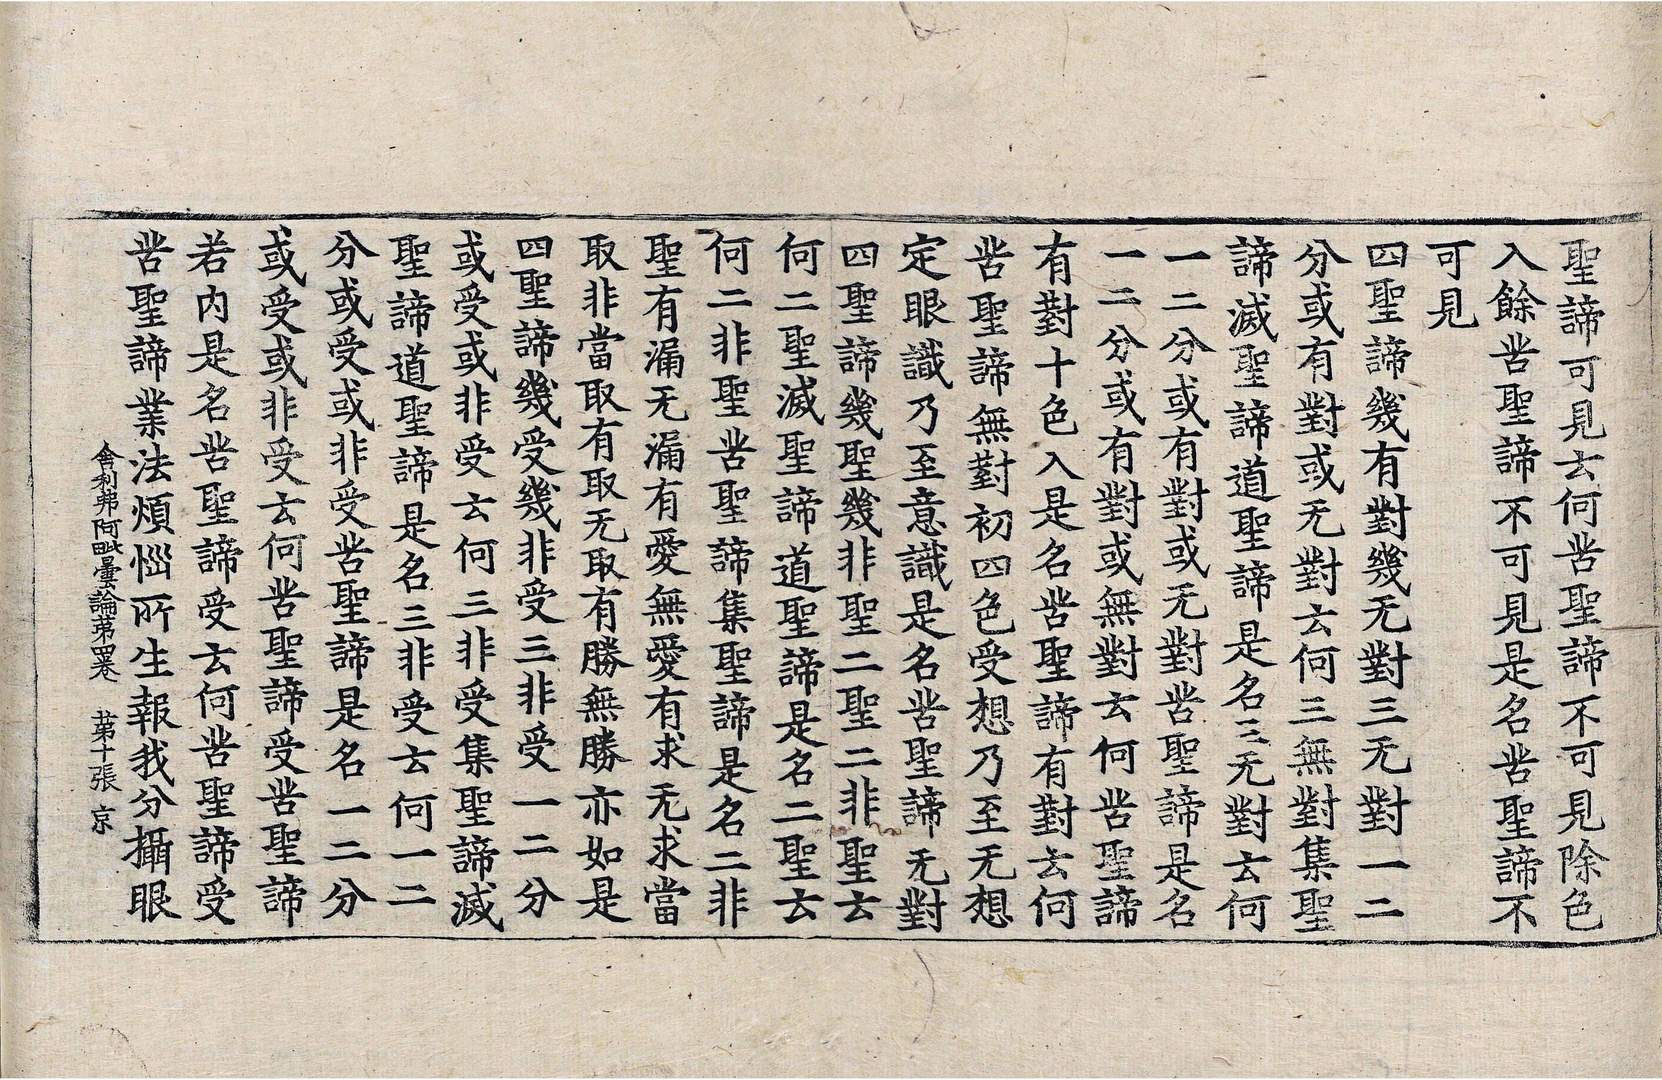 聖諦可見云何苦聖諦不可見除色
入餘苦聖諦不可見是名苦聖諦不
可見
四聖諦幾有對幾无對三无對一二
分或有對或无對云何三無對集聖
諦滅聖諦道聖諦是名三无對云何
一二分或有對或无對苦聖諦是名
一二分或有對或無對云何苦聖諦
有對十色入是名苦聖諦有對云何
苦聖諦無對初四色受想乃至无想
定眼識乃至意識是名苦聖諦无對
四聖諦幾聖幾非聖二聖二非聖云
何二聖滅聖諦道聖諦是名二聖云
何二非聖苦聖諦集聖諦是名二非
聖有漏无漏有愛無愛有求无求當
取非當取有取无取有勝無勝亦如是
四聖諦幾受幾非受三非受一二分
或受或非受云何三非受集聖諦滅
聖諦道聖諦是名三非受云何一二
分或受或非受苦聖諦是名一二分
或受或非受云何苦聖諦受苦聖諦
若內是名苦聖諦受云何苦聖諦受
苦聖諦業法煩惱所生報我分攝眼
舍利弗阿毗曇論苐四卷 苐十張 京